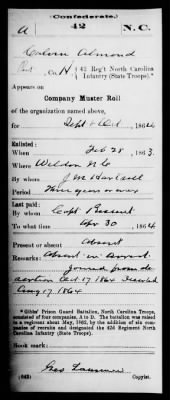 (Confederate.)
A 42 N.C.
Calvin Almond
Pvt, Co. H, 42 Reg't North Carolina
Infantry (State Troops).*
Appears on
Company Muster Roll
of the organization named above,
for Sept & Oct, 1864.
Enlisted:
When Feb 28, 1863.
Where Weldon N C
By whom J M Hartsell
Period Three years or war
Last paid:
By whom Capt
To what time Apr 30, 1864.
Present or absent Absent
Remarks: Absent in arrest
Joined from de
sertion Oct 17 1864
Aug 17 1864
*Gibbs' Prison Guard Battalion, North Carolina Troops,
consisted of four companies, A to D. The battalion was raised
to a regiment about May, 1862, by the addition of six com-
panies of recruits and designated the 42d Regiment North
Carolina Infantry (State Troops).
Book mark:
(642) Copyist.